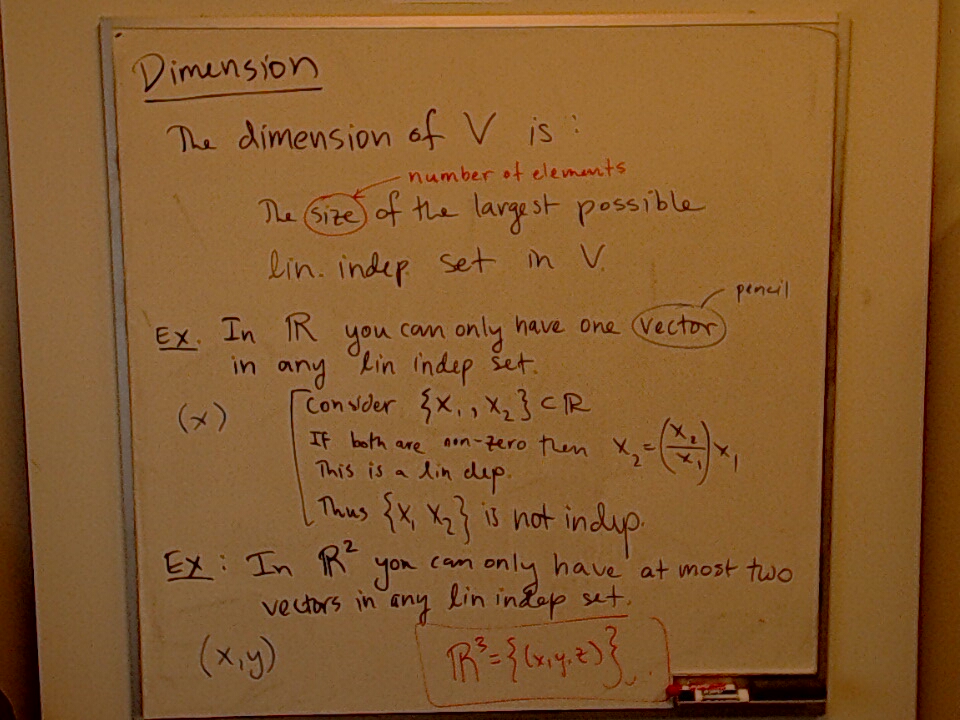 Dimension
The dimension of V is :
number of elements
The size of the largest possible
lin. indep set in V.
pencil
Ex. In ℝ you can only have one vector
in any lin indep set.
(x)
Consider {x₁, x₂} ⊂ ℝ
If both are non-zero then x₂ = (x₂/x₁) x₁
This is a lin dep.
Thus {x₁ x₂} is not indep.
Ex : In ℝ² you can only have at most two
vectors in any lin indep set.
(x,y)
ℝ³ = {(x,y,z)}...